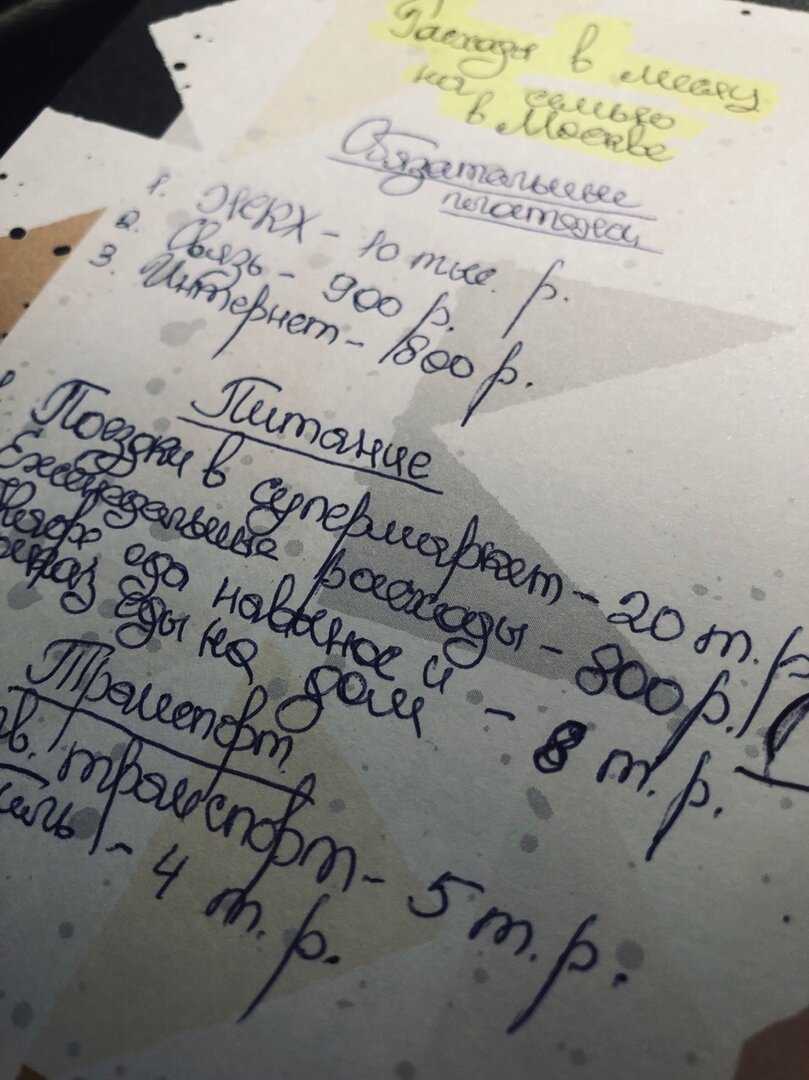 Расходы в месяц
на семью
в Москве
Обязательные
платежи
1. ЖКХ - 10 тыс. р.
2. Связь - 900 р.
3. Интернет - 800 р.
Питание
Поездки в супермаркет - 20 т.р.
Еженедельные расходы - 800 р.
Кофе, еда навынос и
еды на дом - 8 т.р.
Транспорт
транспорт - 5 т.р.
- 4 т.р.